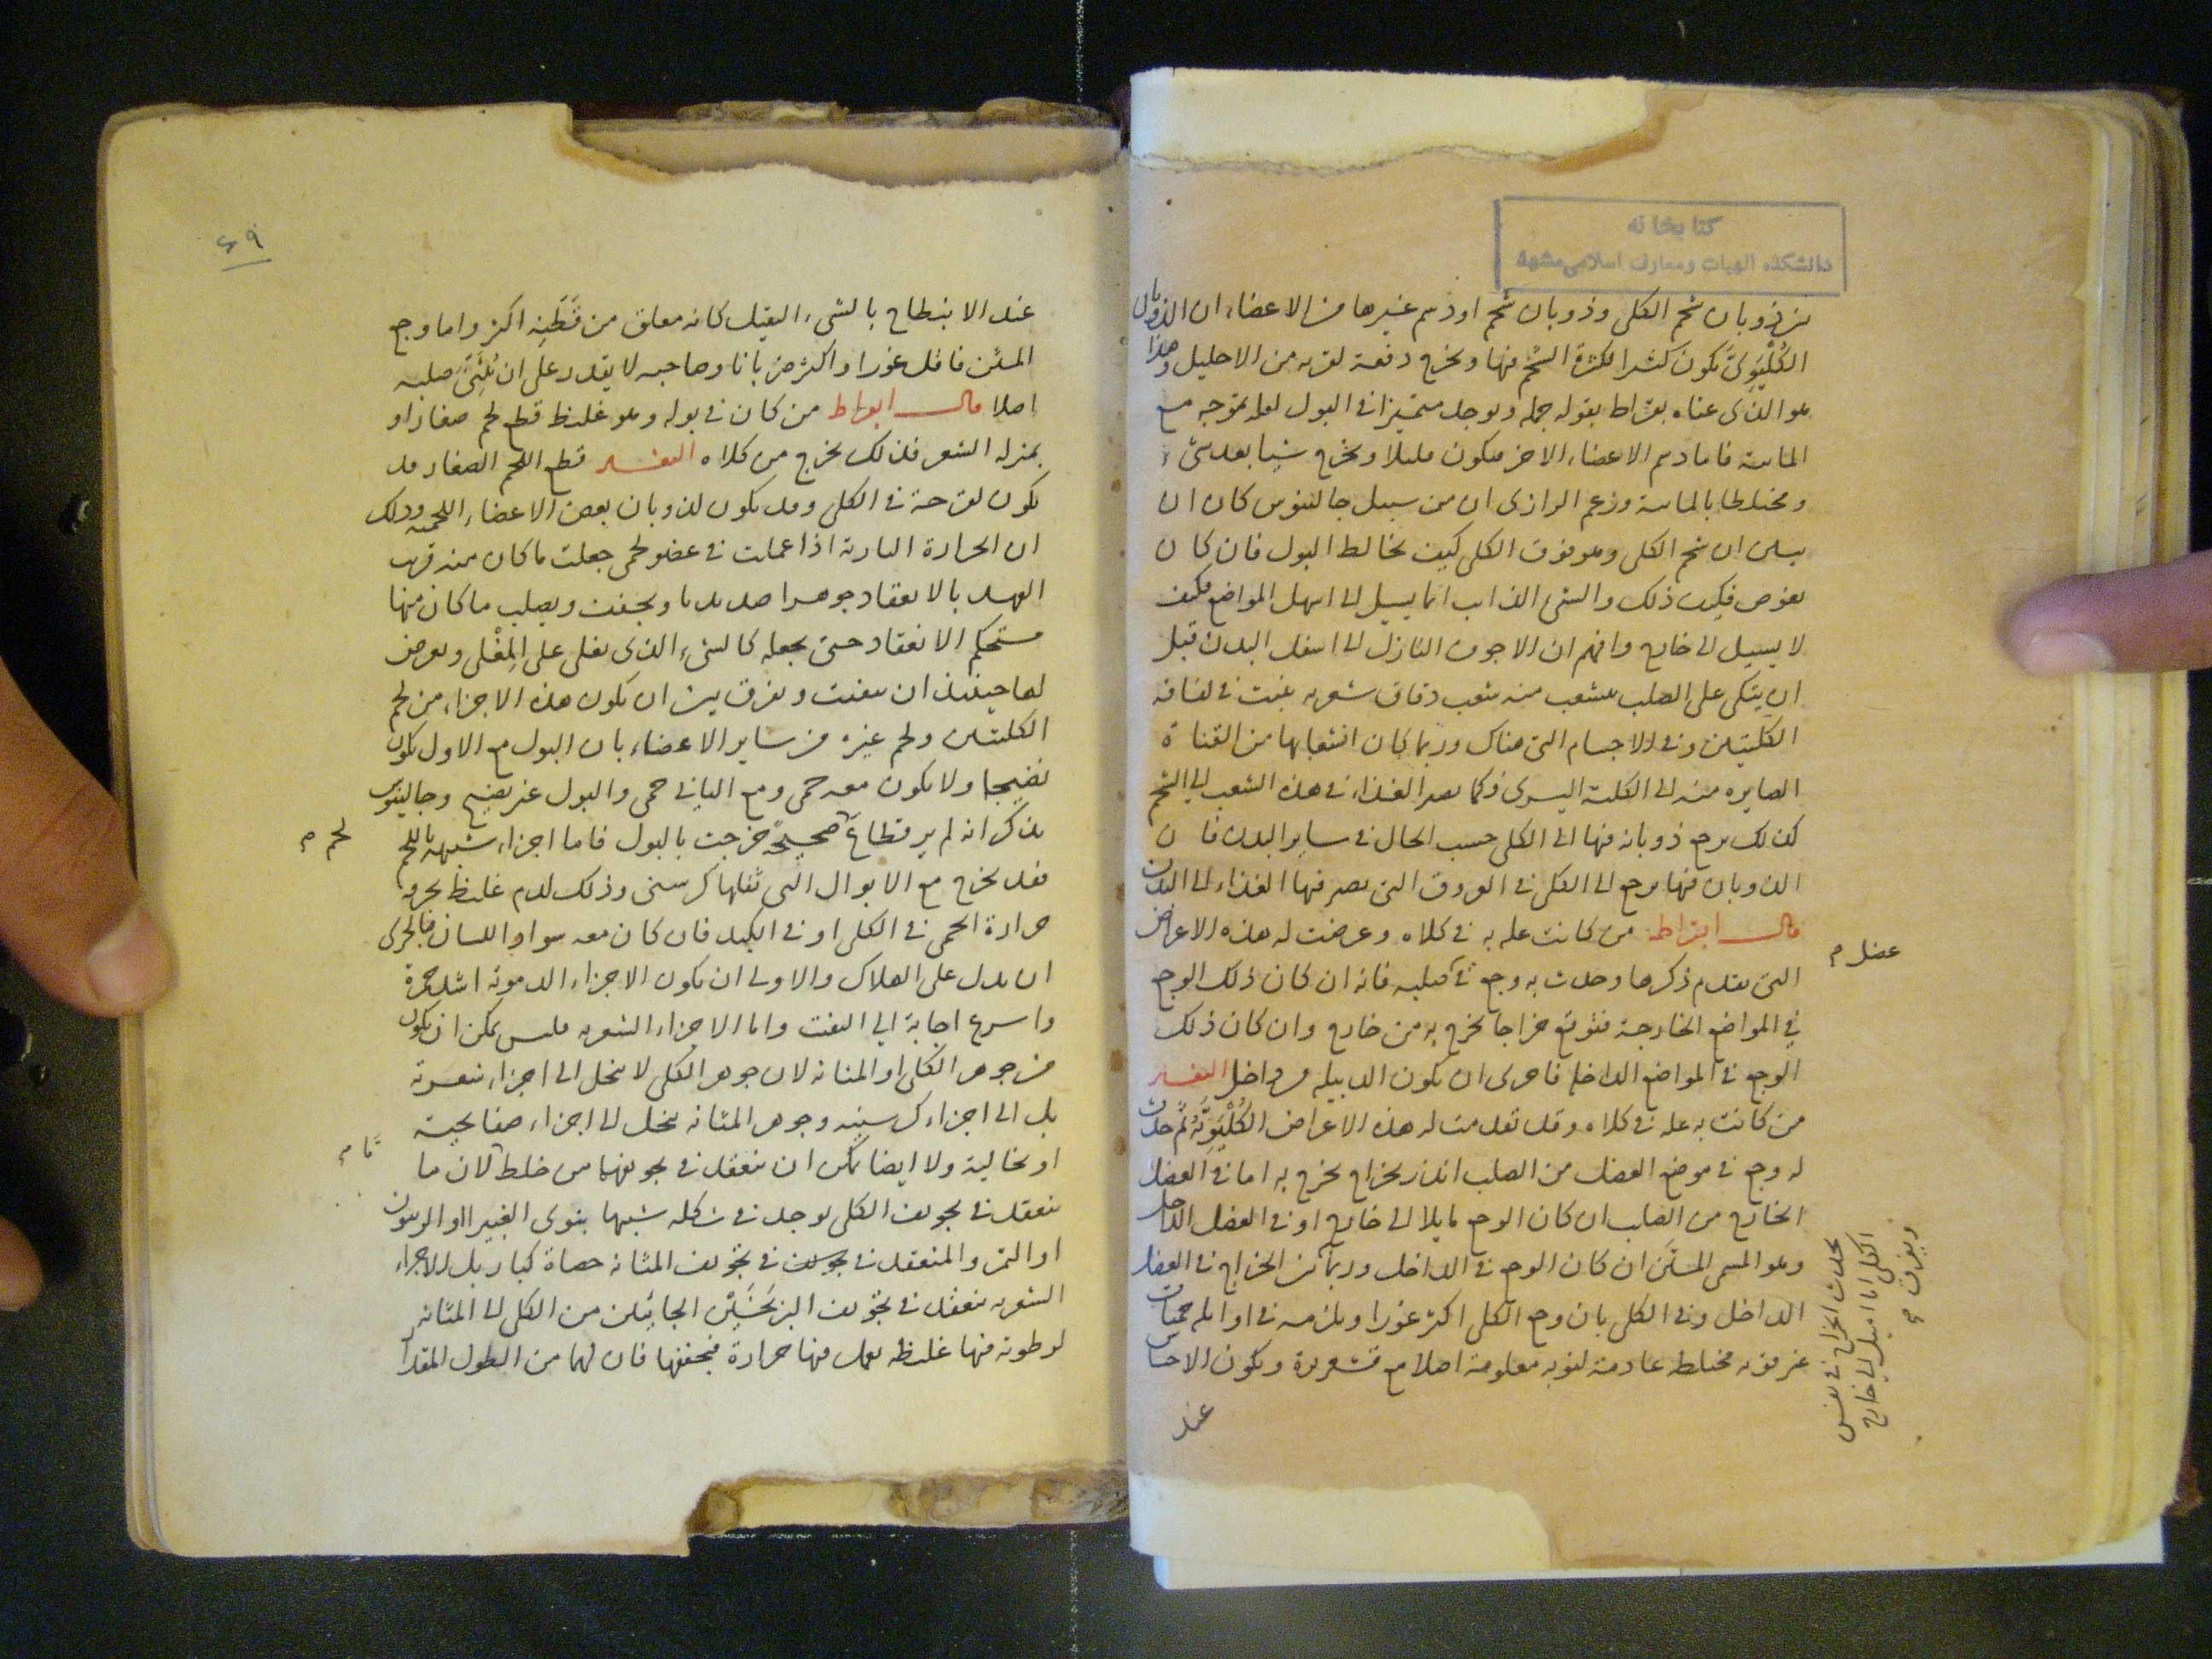 كتابخانه
دانشكده الهيات ومعارف اسلامى مشهد
بين ذوبان شحم الكلى وذوبان شحم او دسم غيرها من الاعضاء ان الذوبان
الكُلْيَوِىَّ يكون كثيرا لكثرة الشحم فيها ويخرج دفعة لقربه من الاحليل وهذا
هو الذى عناه بقراط بقوله جملة ويوجد متميزا فى البول لعله تموجه مع
المائية فاما دسم الاعضاء الاخر فيكون قليلا ويخرج شيا بعد شىء
ومختلطا بالمائية وزعم الرازى ان من سبيل جالينوس كان ان
يبين ان شحم الكلى وهو فوق الكلى كيف يخالط البول فان كان
يغوص فكيف ذلك والشى الذايب انما يسيل الى اسهل المواضع فكيف
لا يسيل الى خارج وافهم ان الاجوف النازل الى اسفل البدن قبل
ان يتكى على الصلب يتشعب منه شعب دقاق شعريه نبت فى لفافة
الكليتين وفى الاجسام التى هناك وربما كان انشعابها من القناة
الصايره منه الى الكلية اليسرى فكما يصير الغذاء فى هذه الشعب الى الشحم
كذلك يرجع ذوبانه فيها الى الكلى حسب الحال فى ساير البدن فان
الذوبان فيها يرجع الى الكلى فى العروق التى يصير فيها الغذاء الى البدن
قال ابقراط من كانت عله به فى كلاه وعرضت له هذه الاعراض
عضل م
التى تقدم ذكرها وحدث به وجع فى صلبه فانه ان كان ذلك الوجع
فى المواضع الخارجة فتوقع خراجا يخرج به من خارج وان كان ذلك
الوجع فى المواضع الداخله فاحرى ان يكون الدبيله من داخل التفسير
من كانت به عله فى كلاه وقد تقدمت له هذه الاعراض الكُلْيَوِيَّةُ ثم حدث
له وجع فى موضع العضل من الصلب انذر بخراج يخرج به اما فى العضل
الخارج من الصلب ان كان الوجع مايلا الى خارج او فى العضل الداخل
وهو المسمى المتن ان كان الوجع فى الداخل وربما من الخراج فى العضل
الداخل وفى الكلى بان وجع الكلى اكثر غورا ويلزمه فى اوايله حميات
غير قويه مختلطه عادمة لنوبه معلومة اصلا مع قشعريرة ويكون الاحساس
يحدث الخراج فى نفس
الكلى اما اميل الى خارج
ويفرق م
عند
٤٩
عند الانبطاح بالشىء الثقيل كانه معلق من قَطَنِه اكثر واما وجع
المتن فاقل غورا واكثر ضربانا وصاحبه لا يقدر على ان يُثْنِىَ صلبه
اصلا قال ابقراط من كان فى بوله وهو غليظ قطع لحم صغار او
بمنزله الشعر فذلك يخرج من كلاه التفسير قطع اللحم الصغار قد
يكون لقرحة فى الكلى وقد يكون لذوبان بعض الاعضاء اللحميه وذلك
ان الحرارة النارية اذا عملت فى عضو لحمى جعلت ما كان منه قريب
العهد بالانعقاد جوهرا صديديا ويجفف ويصلب ما كان منها
مستحكم الانعقاد حتى يجعله كالشىء الذى يغلى على المِغْلى ويعرض
لها حينئذ ان تتفتت ويفرق بين ان يكون هذه الاجزاء من لحم
الكليتين ولحم غيره من ساير الاعضاء بان البول مع الاول يكون
نضيجا ولا يكون معه حمى ومع الثانى حمى والبول غير نضيج وجالينوس
يذكر انه لم ير قطاع صحيحة خرجت بالبول فاما اجزاء شبيهه باللحم
لحم م
فقد يخرج مع الابوال التى ثفلها كرسنى وذلك لدم غليظ يحرقه
حرارة الحمى فى الكلى او فى الكبد فان كان معه سواد اللسان فبالحرى
ان يدل على الهلاك والاولى ان يكون الاجزاء الدمويه اشد حمرة
واسرع اجابة الى التفتت واما الاجزاء الشعريه فليس يمكن ان يكون
من جوهر الكلى او المثانه لان جوهر الكلى لا ينحل الى اجزاء شعرية
بل الى اجزاء كرسنيه وجوهر المثانه ينحل الى اجزاء صفايحية
او نخالية ولا ايضا يمكن ان ينعقد فى تجويفهما من خلط لان ما
ما م
ينعقد فى تجويف الكلى يوجد فى شكله شبيها بنوى الغبيرا او الزيتون
او التمر والمنعقد فى تجويف فى تجويف المثانه حصاة كبار بل الاجزاء
الشعريه ينعقد فى تجويف البَرْبَخَيْن الجائيين من الكلى الى المثانه
لرطوبة فيها غليظه يعمل فيها حرارة فيجففها فان لهما من الطول المقدار